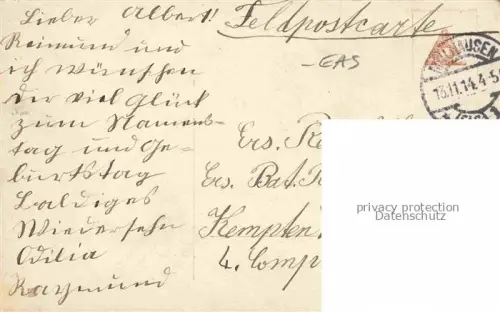 Lieber Albert!
Feldpostcarte
Reimund und
ich wünschen
dir viel Glück
zum Namens-
tag und Ge-
burtstag
Baldiges
Wiedersehn
Odilia
Raymund
EAS
MÜLHAUSEN
13.11.14. 4-5
Ers.
Ers. Bat.
Kempten
4. Comp
privacy protection
Datenschutz